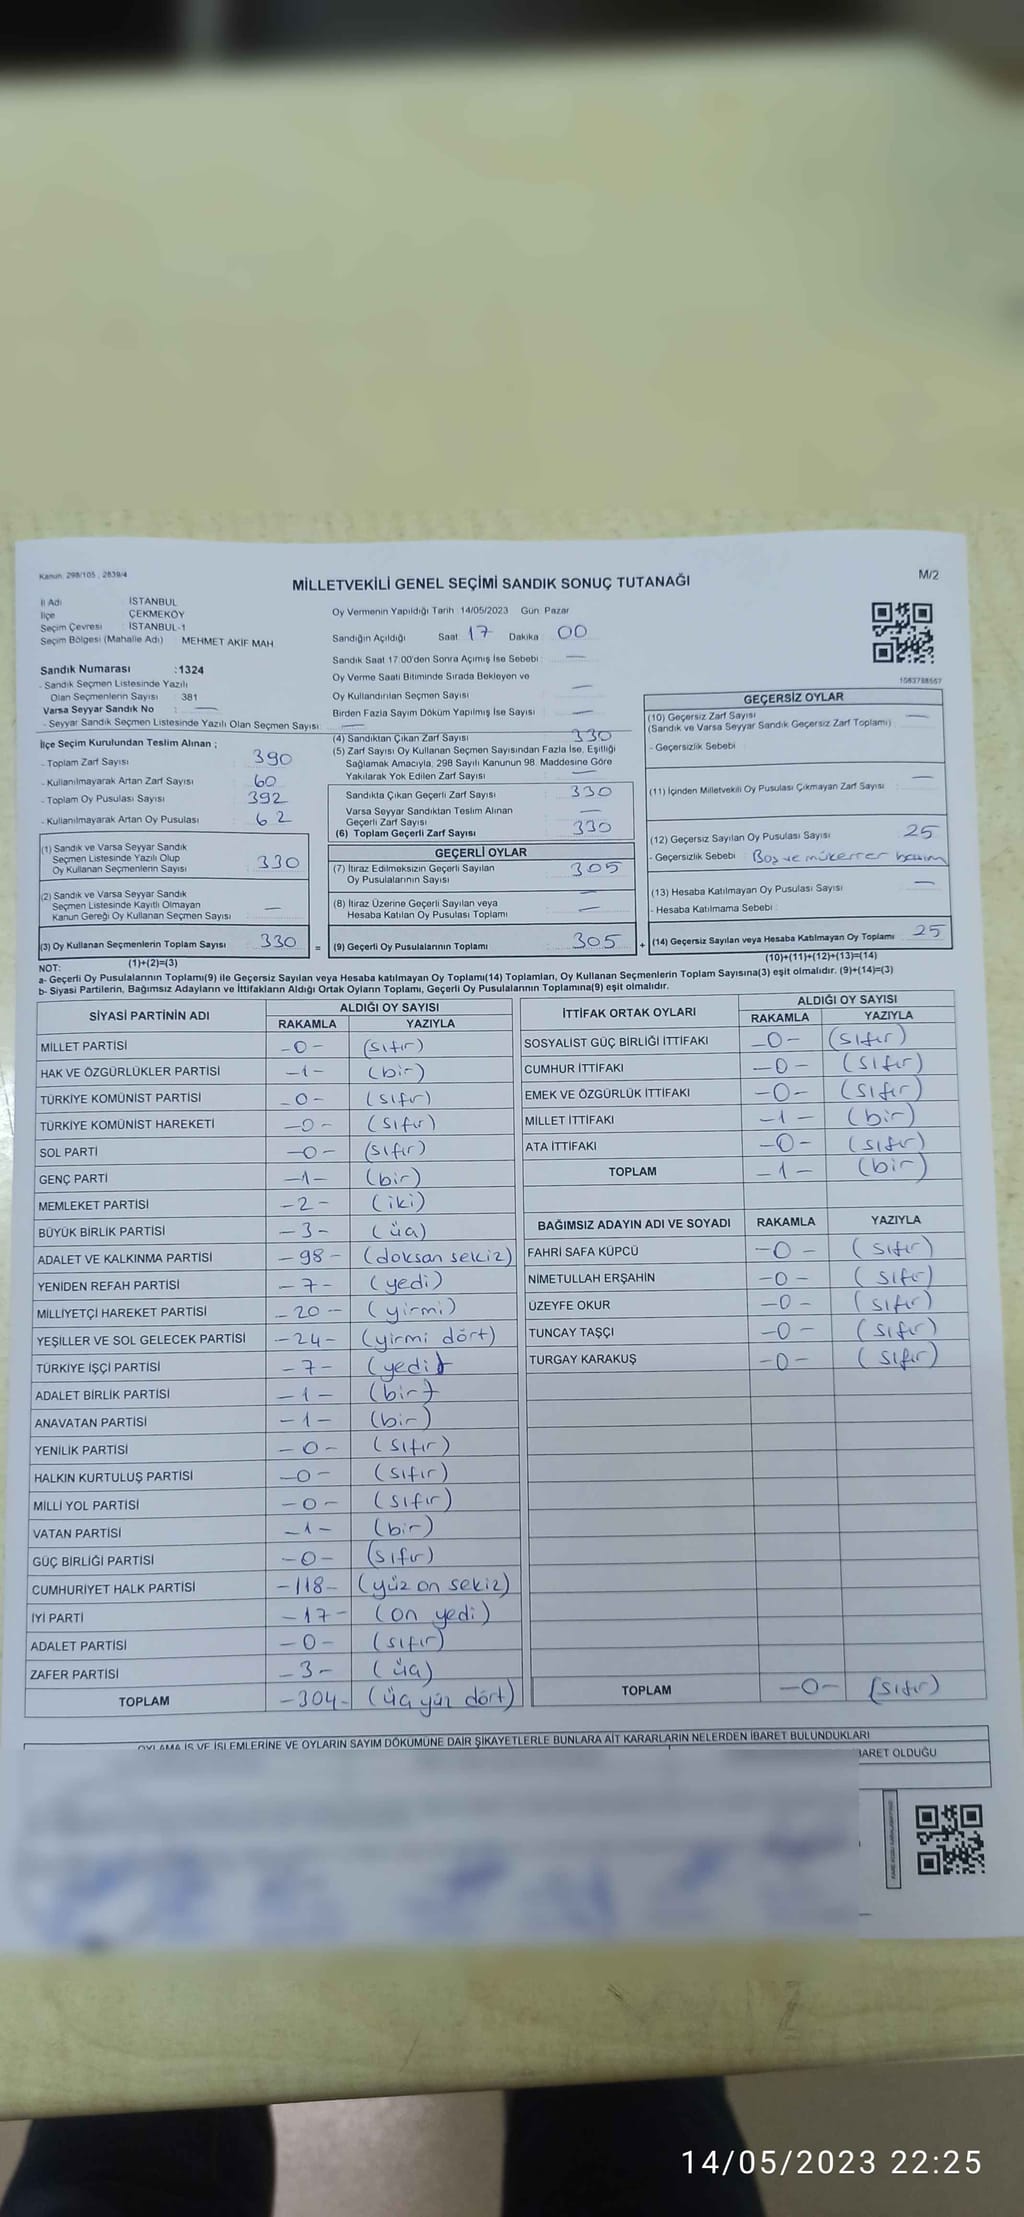 Kanun: 298/105, 2839/4
MİLLETVEKİLİ GENEL SEÇİMİ SANDIK SONUÇ TUTANAĞI
M/2
İl Adı İSTANBUL
İlçe ÇEKMEKÖY
Seçim Çevresi İSTANBUL-1
Seçim Bölgesi (Mahalle Adı) MEHMET AKİF MAH
Sandık Numarası :1324
- Sandık Seçmen Listesinde Yazılı
Olan Seçmenlerin Sayısı 381
Varsa Seyyar Sandık No : —
- Seyyar Sandık Seçmen Listesinde Yazılı Olan Seçmen Sayısı : —
İlçe Seçim Kurulundan Teslim Alınan ;
- Toplam Zarf Sayısı : 390
- Kullanılmayarak Artan Zarf Sayısı : 60
- Toplam Oy Pusulası Sayısı : 392
- Kullanılmayarak Artan Oy Pusulası : 62
(1) Sandık ve Varsa Seyyar Sandık
Seçmen Listesinde Yazılı Olup
Oy Kullanan Seçmenlerin Sayısı : 330
(2) Sandık ve Varsa Seyyar Sandık
Seçmen Listesinde Kayıtlı Olmayan
Kanun Gereği Oy Kullanan Seçmen Sayısı : —
(3) Oy Kullanan Seçmenlerin Toplam Sayısı : 330 =
(1)+(2)=(3)
Oy Vermenin Yapıldığı Tarih :14/05/2023 Gün: Pazar
Sandığın Açıldığı Saat 17 Dakika 00
Sandık Saat 17.00'den Sonra Açımış İse Sebebi : —
Oy Verme Saati Bitiminde Sırada Bekleyen ve
Oy Kullandırılan Seçmen Sayısı : —
Birden Fazla Sayım Döküm Yapılmış İse Sayısı : —
(4) Sandıktan Çıkan Zarf Sayısı : 330
(5) Zarf Sayısı Oy Kullanan Seçmen Sayısından Fazla İse, Eşitliği
Sağlamak Amacıyla, 298 Sayılı Kanunun 98. Maddesine Göre
Yakılarak Yok Edilen Zarf Sayısı : —
Sandıkta Çıkan Geçerli Zarf Sayısı : 330
Varsa Seyyar Sandıktan Teslim Alınan
Geçerli Zarf Sayısı : —
(6) Toplam Geçerli Zarf Sayısı : 330
GEÇERLİ OYLAR
(7) İtiraz Edilmeksizin Geçerli Sayılan
Oy Pusulalarının Sayısı : 305
(8) İtiraz Üzerine Geçerli Sayılan veya
Hesaba Katılan Oy Pusulası Toplamı : —
(9) Geçerli Oy Pusulalarının Toplamı : 305 +
1083788567
GEÇERSİZ OYLAR
(10) Geçersiz Zarf Sayısı : —
(Sandık ve Varsa Seyyar Sandık Geçersiz Zarf Toplamı)
- Geçersizlik Sebebi :
(11) İçinden Milletvekili Oy Pusulası Çıkmayan Zarf Sayısı : —
(12) Geçersiz Sayılan Oy Pusulası Sayısı : 25
- Geçersizlik Sebebi : Boş ve mükerrer basım
(13) Hesaba Katılmayan Oy Pusulası Sayısı : —
- Hesaba Katılmama Sebebi :
(14) Geçersiz Sayılan veya Hesaba Katılmayan Oy Toplamı : 25
(10)+(11)+(12)+(13)=(14)
NOT:
a- Geçerli Oy Pusulalarının Toplamı(9) ile Geçersiz Sayılan veya Hesaba katılmayan Oy Toplamı(14) Toplamları, Oy Kullanan Seçmenlerin Toplam Sayısına(3) eşit olmalıdır. (9)+(14)=(3)
b- Siyasi Partilerin, Bağımsız Adayların ve İttifakların Aldığı Ortak Oyların Toplamı, Geçerli Oy Pusulalarının Toplamına(9) eşit olmalıdır.
SİYASİ PARTİNİN ADI ALDIĞI OY SAYISI
RAKAMLA YAZIYLA
MİLLET PARTİSİ -0- (sıfır)
HAK VE ÖZGÜRLÜKLER PARTİSİ -1- (bir)
TÜRKİYE KOMÜNİST PARTİSİ -0- (sıfır)
TÜRKİYE KOMÜNİST HAREKETİ -0- (sıfır)
SOL PARTİ -0- (sıfır)
GENÇ PARTİ -1- (bir)
MEMLEKET PARTİSİ -2- (iki)
BÜYÜK BİRLİK PARTİSİ -3- (üç)
ADALET VE KALKINMA PARTİSİ -98- (doksan sekiz)
YENİDEN REFAH PARTİSİ -7- (yedi)
MİLLİYETÇİ HAREKET PARTİSİ -20- (yirmi)
YEŞİLLER VE SOL GELECEK PARTİSİ -24- (yirmi dört)
TÜRKİYE İŞÇİ PARTİSİ -7- (yedi)
ADALET BİRLİK PARTİSİ -1- (bir)
ANAVATAN PARTİSİ -1- (bir)
YENİLİK PARTİSİ -0- (sıfır)
HALKIN KURTULUŞ PARTİSİ -0- (sıfır)
MİLLİ YOL PARTİSİ -0- (sıfır)
VATAN PARTİSİ -1- (bir)
GÜÇ BİRLİĞİ PARTİSİ -0- (sıfır)
CUMHURİYET HALK PARTİSİ -118- (yüz on sekiz)
İYİ PARTİ -17- (on yedi)
ADALET PARTİSİ -0- (sıfır)
ZAFER PARTİSİ -3- (üç)
TOPLAM -304- (üç yüz dört)
İTTİFAK ORTAK OYLARI ALDIĞI OY SAYISI
RAKAMLA YAZIYLA
SOSYALİST GÜÇ BİRLİĞİ İTTİFAKI -0- (sıfır)
CUMHUR İTTİFAKI -0- (sıfır)
EMEK VE ÖZGÜRLÜK İTTİFAKI -0- (sıfır)
MİLLET İTTİFAKI -1- (bir)
ATA İTTİFAKI -0- (sıfır)
TOPLAM -1- (bir)
BAĞIMSIZ ADAYIN ADI VE SOYADI RAKAMLA YAZIYLA
FAHRİ SAFA KÜPCÜ -0- (sıfır)
NİMETULLAH ERŞAHİN -0- (sıfır)
ÜZEYFE OKUR -0- (sıfır)
TUNCAY TAŞÇI -0- (sıfır)
TURGAY KARAKUŞ -0- (sıfır)
TOPLAM -0- (sıfır)
OYLAMA İŞ VE İŞLEMLERİNE VE OYLARIN SAYIM DÖKÜMÜNE DAİR ŞİKAYETLERLE BUNLARA AİT KARARLARIN NELERDEN İBARET BULUNDUKLARI
BARET OLDUĞU
14/05/2023 22:25